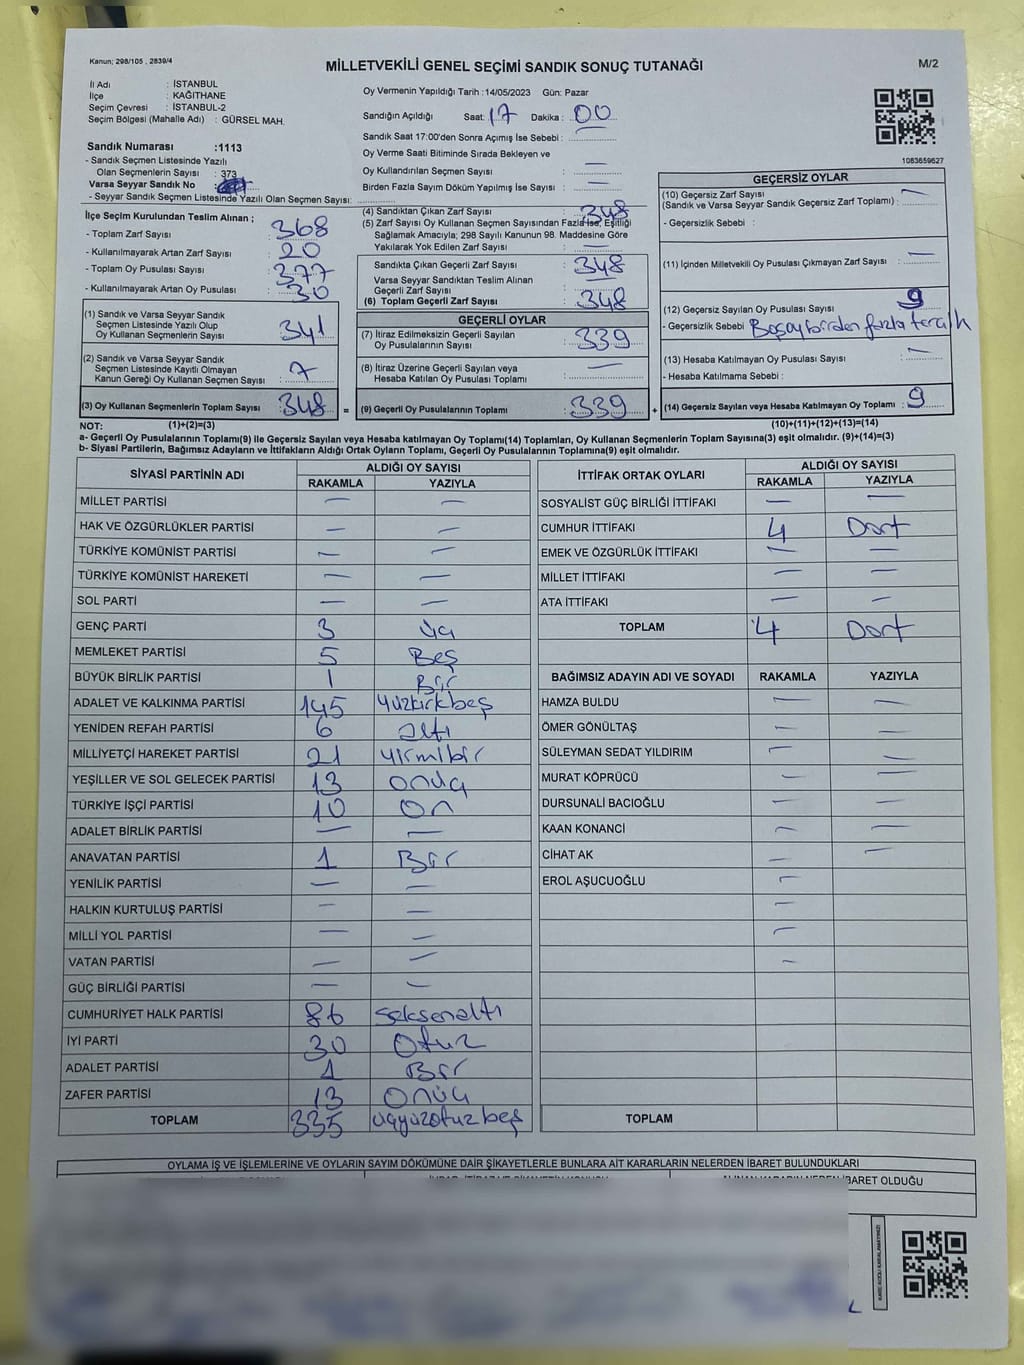 Kanun; 298/105 , 2839/4
MİLLETVEKİLİ GENEL SEÇİMİ SANDIK SONUÇ TUTANAĞI
M/2
İl Adı : İSTANBUL
İlçe : KAĞITHANE
Seçim Çevresi : İSTANBUL-2
Seçim Bölgesi (Mahalle Adı) : GÜRSEL MAH.
Oy Vermenin Yapıldığı Tarih :14/05/2023 Gün: Pazar
Sandığın Açıldığı Saat: 17 Dakika : 00
Sandık Saat 17:00'den Sonra Açımış İse Sebebi :
Oy Verme Saati Bitiminde Sırada Bekleyen ve
Oy Kullandırılan Seçmen Sayısı : —
Birden Fazla Sayım Döküm Yapılmış İse Sayısı : —
1083659627
Sandık Numarası :1113
- Sandık Seçmen Listesinde Yazılı
Olan Seçmenlerin Sayısı : 373
Varsa Seyyar Sandık No :
- Seyyar Sandık Seçmen Listesinde Yazılı Olan Seçmen Sayısı:
İlçe Seçim Kurulundan Teslim Alınan ;
- Toplam Zarf Sayısı : 368
- Kullanılmayarak Artan Zarf Sayısı : 20
- Toplam Oy Pusulası Sayısı : 377
- Kullanılmayarak Artan Oy Pusulası : 30
(1) Sandık ve Varsa Seyyar Sandık
Seçmen Listesinde Yazılı Olup
Oy Kullanan Seçmenlerin Sayısı : 341
(2) Sandık ve Varsa Seyyar Sandık
Seçmen Listesinde Kayıtlı Olmayan
Kanun Gereği Oy Kullanan Seçmen Sayısı : 7
(3) Oy Kullanan Seçmenlerin Toplam Sayısı : 348 =
(4) Sandıktan Çıkan Zarf Sayısı : 348
(5) Zarf Sayısı Oy Kullanan Seçmen Sayısından Fazla İse, Eşitliği
Sağlamak Amacıyla; 298 Sayılı Kanunun 98. Maddesine Göre
Yakılarak Yok Edilen Zarf Sayısı : —
Sandıkta Çıkan Geçerli Zarf Sayısı : 348
Varsa Seyyar Sandıktan Teslim Alınan
Geçerli Zarf Sayısı : —
(6) Toplam Geçerli Zarf Sayısı : 348
GEÇERLİ OYLAR
(7) İtiraz Edilmeksizin Geçerli Sayılan
Oy Pusulalarının Sayısı : 339
(8) İtiraz Üzerine Geçerli Sayılan veya
Hesaba Katılan Oy Pusulası Toplamı : —
(9) Geçerli Oy Pusulalarının Toplamı : 339 +
GEÇERSİZ OYLAR
(10) Geçersiz Zarf Sayısı
(Sandık ve Varsa Seyyar Sandık Geçersiz Zarf Toplamı) : —
- Geçersizlik Sebebi :
(11) İçinden Milletvekili Oy Pusulası Çıkmayan Zarf Sayısı : —
(12) Geçersiz Sayılan Oy Pusulası Sayısı : 9
- Geçersizlik Sebebi : birden fazla tercih
(13) Hesaba Katılmayan Oy Pusulası Sayısı : —
- Hesaba Katılmama Sebebi :
(14) Geçersiz Sayılan veya Hesaba Katılmayan Oy Toplamı : 9
NOT: (1)+(2)=(3) (10)+(11)+(12)+(13)=(14)
a- Geçerli Oy Pusulalarının Toplamı(9) ile Geçersiz Sayılan veya Hesaba katılmayan Oy Toplamı(14) Toplamları, Oy Kullanan Seçmenlerin Toplam Sayısına(3) eşit olmalıdır. (9)+(14)=(3)
b- Siyasi Partilerin, Bağımsız Adayların ve İttifakların Aldığı Ortak Oyların Toplamı, Geçerli Oy Pusulalarının Toplamına(9) eşit olmalıdır.
SİYASİ PARTİNİN ADI ALDIĞI OY SAYISI
RAKAMLA YAZIYLA
MİLLET PARTİSİ — —
HAK VE ÖZGÜRLÜKLER PARTİSİ — —
TÜRKİYE KOMÜNİST PARTİSİ — —
TÜRKİYE KOMÜNİST HAREKETİ — —
SOL PARTİ — —
GENÇ PARTİ 3 Üç
MEMLEKET PARTİSİ 5 Beş
BÜYÜK BİRLİK PARTİSİ 1 Bir
ADALET VE KALKINMA PARTİSİ 145 Yüzkırkbeş
YENİDEN REFAH PARTİSİ 6 altı
MİLLİYETÇİ HAREKET PARTİSİ 21 yirmibir
YEŞİLLER VE SOL GELECEK PARTİSİ 13 onüç
TÜRKİYE İŞÇİ PARTİSİ 10 On
ADALET BİRLİK PARTİSİ — —
ANAVATAN PARTİSİ 1 Bir
YENİLİK PARTİSİ — —
HALKIN KURTULUŞ PARTİSİ — —
MİLLİ YOL PARTİSİ — —
VATAN PARTİSİ — —
GÜÇ BİRLİĞİ PARTİSİ — —
CUMHURİYET HALK PARTİSİ 86 Seksenaltı
İYİ PARTİ 30 Otuz
ADALET PARTİSİ 1 Bir
ZAFER PARTİSİ 13 Onüç
TOPLAM 335 üçyüzotuzbeş
İTTİFAK ORTAK OYLARI ALDIĞI OY SAYISI
RAKAMLA YAZIYLA
SOSYALİST GÜÇ BİRLİĞİ İTTİFAKI — —
CUMHUR İTTİFAKI 4 Dört
EMEK VE ÖZGÜRLÜK İTTİFAKI — —
MİLLET İTTİFAKI — —
ATA İTTİFAKI — —
TOPLAM 4 Dört
BAĞIMSIZ ADAYIN ADI VE SOYADI RAKAMLA YAZIYLA
HAMZA BULDU — —
ÖMER GÖNÜLTAŞ — —
SÜLEYMAN SEDAT YILDIRIM — —
MURAT KÖPRÜCÜ — —
DURSUNALİ BACIOĞLU — —
KAAN KONANCİ — —
CİHAT AK — —
EROL AŞUCUOĞLU —
—
—
—
TOPLAM
OYLAMA İŞ VE İŞLEMLERİNE VE OYLARIN SAYIM DÖKÜMÜNE DAİR ŞİKAYETLERLE BUNLARA AİT KARARLARIN NELERDEN İBARET BULUNDUKLARI
İBARET OLDUĞU
KARE KODU KARALAMAYINIZ!